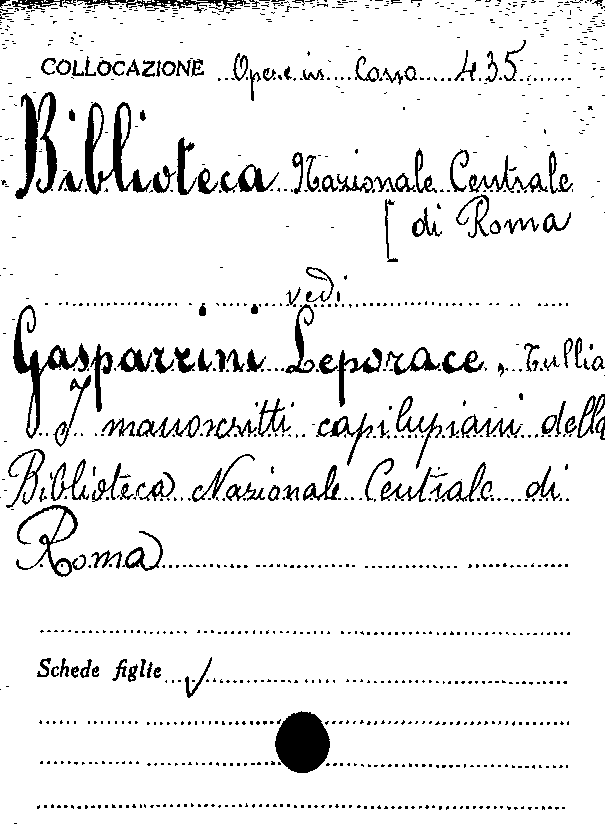 COLLOCAZIONE Opere in Corso 435
Biblioteca Nazionale Centrale
[di Roma
vedi
Gasparrini Leporace, Tullia
I manoscritti capilupiani della
Biblioteca Nazionale Centrale di
Roma
Schede figlie √